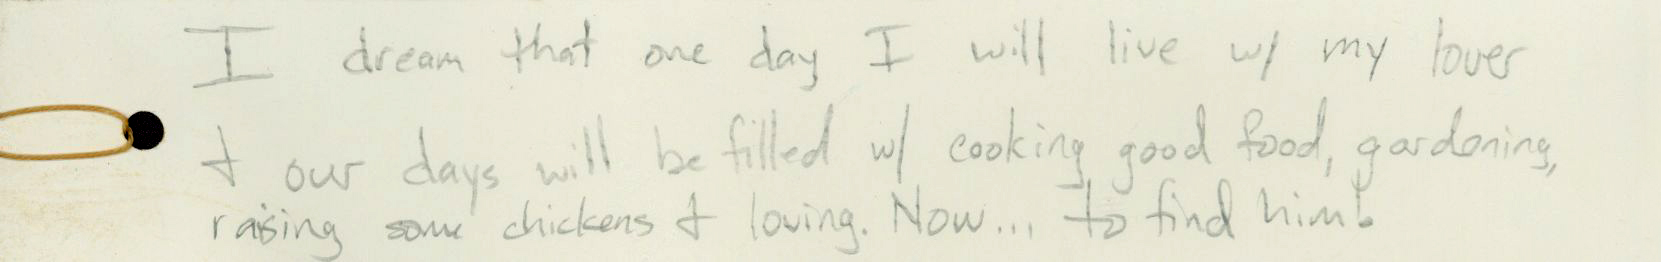 I dream that one day I will live w/ my lover
& our days will be filled w/ cooking good food, gardening,
raising some chickens & loving. Now... to find him!